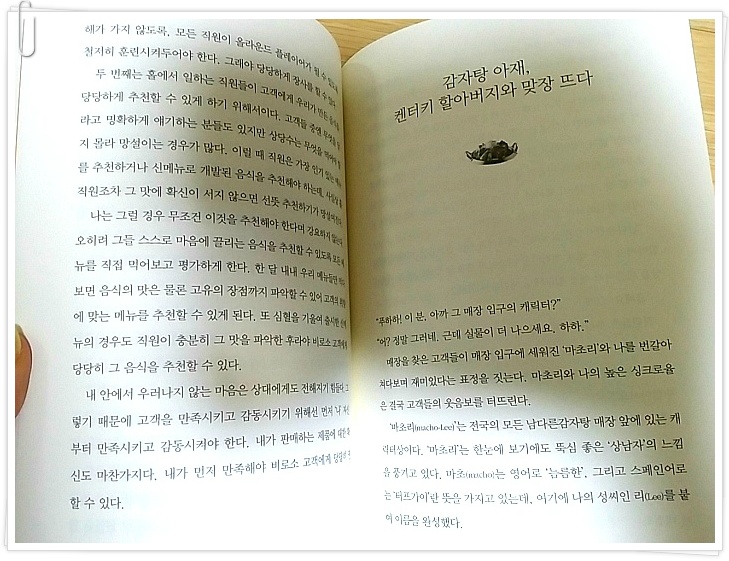 해가 가지 않도록, 모든 직원이 올라운드 플레이어가 될 수 있도록
철저히 훈련시켜두어야 한다. 그래야 당당하게 장사를 할 수 있다.
두 번째는 홀에서 일하는 직원들이 고객에게 우리가 만든 음식을
당당하게 추천할 수 있게 하기 위해서이다. 고객들 중엔 무엇을
라고 명확하게 얘기하는 분들도 있지만 상당수는 무엇을 먹어야 할
지 몰라 망설이는 경우가 많다. 이럴 때 직원은 가장 인기 있는
를 추천하거나 신메뉴로 개발된 음식을 추천해야 하는데, 사실
직원조차 그 맛에 확신이 서지 않으면 선뜻 추천하기가 망설여진다.
나는 그럴 경우 무조건 이것을 추천해야 한다며 강요하지 않는다.
오히려 그들 스스로 마음에 끌리는 음식을 추천할 수 있도록 모든 메
뉴를 직접 먹어보고 평가하게 한다. 한 달 내내 우리 메뉴들만
보면 음식의 맛은 물론 고유의 장점까지 파악할 수 있어 고객의
에 맞는 메뉴를 추천할 수 있게 된다. 또 심혈을 기울여 출시한 신메
뉴의 경우도 직원이 충분히 그 맛을 파악한 후라야 비로소 고객에게
당당히 그 음식을 추천할 수 있다.
내 안에서 우러나지 않는 마음은 상대에게도 전해지기 힘들다. 그
렇기 때문에 고객을 만족시키고 감동시키기 위해선 먼저 '나' 자신
부터 만족시키고 감동시켜야 한다. 내가 판매하는 제품에 대한 확
신도 마찬가지다. 내가 먼저 만족해야 비로소 고객에게 당당히
할 수 있다.
감자탕 아재,
켄터키 할아버지와 맞장 뜨다
"푸하하! 이 분, 아까 그 매장 입구의 캐릭터?"
"어? 정말 그러네. 근데 실물이 더 나으세요, 하하."
매장을 찾은 고객들이 매장 입구에 세워진 '마초리'와 나를 번갈아
쳐다보며 재미있다는 표정을 짓는다. 마초리와 나의 높은 싱크로율
은 결국 고객들의 웃음보를 터뜨린다.
'마초리(macho-Lee)'는 전국의 모든 남다른감자탕 매장 앞에 있는 캐
릭터상이다. '마초리'는 한눈에 보기에도 뚝심 좋은 '상남자'의 느낌
을 풍기고 있다. 마초(macho)는 영어로 '늠름한', 그리고 스페인어로
는 '터프가이'란 뜻을 가지고 있는데, 여기에 나의 성씨인 리(Lee)를 붙
여 이름을 완성했다.